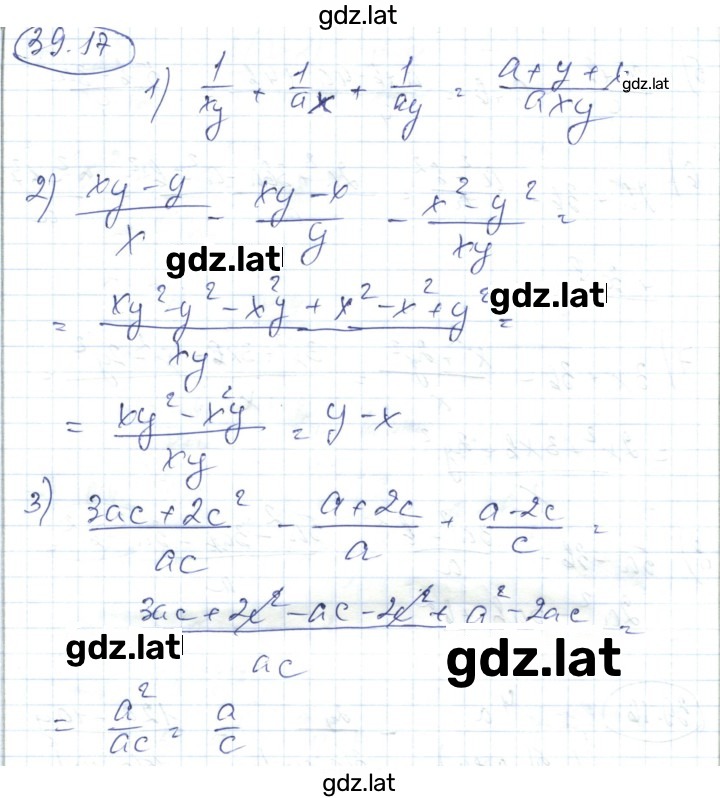 gdz.lat
39.17
1) 1/xy + 1/ax + 1/ay = (a + y + x)/axy
gdz.lat
2) (xy - y)/x - (xy - x)/y - (x² - y²)/xy =
gdz.lat
= (xy² - y² - x²y + x² - x² + y²)/xy =
gdz.lat
= (xy² - x²y)/xy = y - x
3) (3ac + 2c²)/ac - (a + 2c)/a + (a - 2c)/c =
(3ac + 2c² - ac - 2c² + a² - 2ac)/ac =
gdz.lat
gdz.lat
= a²/ac = a/c
gdz.lat